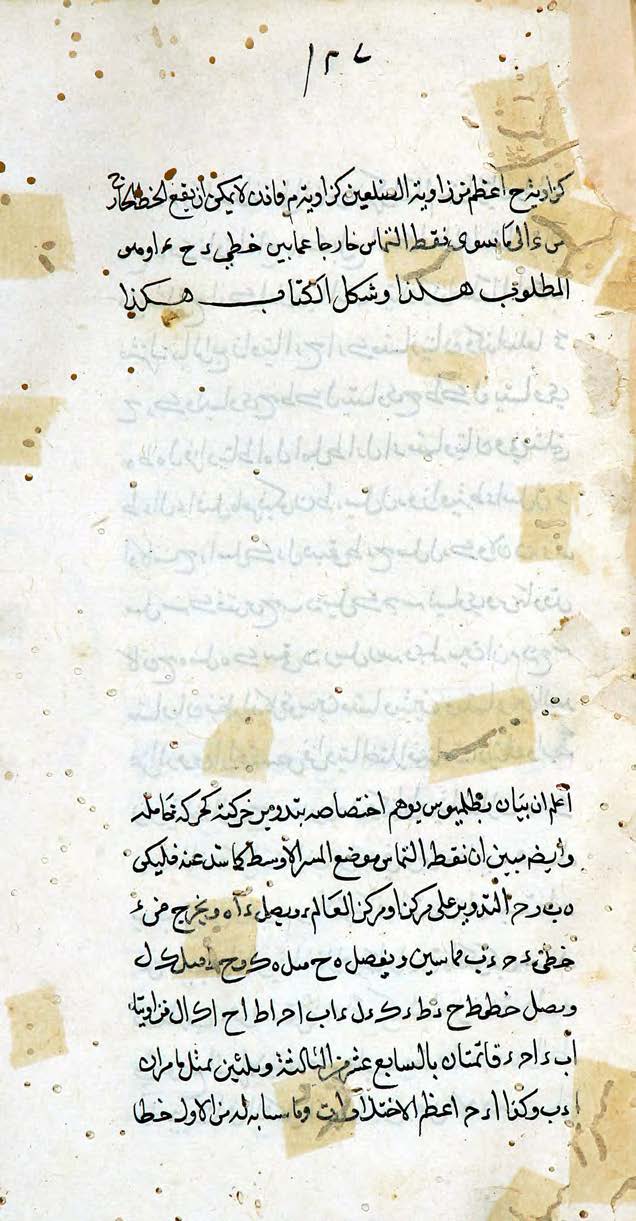 ١٢٧
كزاوية ح اعظم من زاوية الضلعين كزاوية م فاذن لا يمكن ان يقع الخط الخارج
من ء الى ما سوى نقط التماس خارجا عما بين خطي ء ح ء ا وهو
المطلوب هكذا وشكل الكتاب هكذا
اعلم ان بيان بطلميوس يوهم اختصاصه بتدوير حركته كحركة حامله
وايضا يبين ان نقطة التماس موضع المسير الاوسط كما ستد عنه فليكن
ه ب ر ح التدوير على مركز ا ومركز العالم ء ويصل ء ا ه ويخرج من ء
خطي ء ح ء ب مماسين ويفصل ه ح مثل ه ك و ح ط مثل ك ل
ويصل خطوط ح ء ط ء ك ء ل ء ا ب ا ح ا ط ا ح ا ك ا ل فزاويتا
ا ب ء ا ح ء قائمتان بالسابع عشر من الثالثة وبمثل ما مر ان
ا ء ب وكذا ا ء ح اعظم الاختلافات من الاول خطا